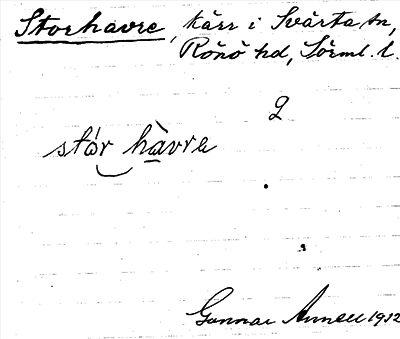 Storhavre, kärr i Svärta sn,
Rönö hd, Sörml. l.
2
stór hàvre
Gunnar Annell 1932